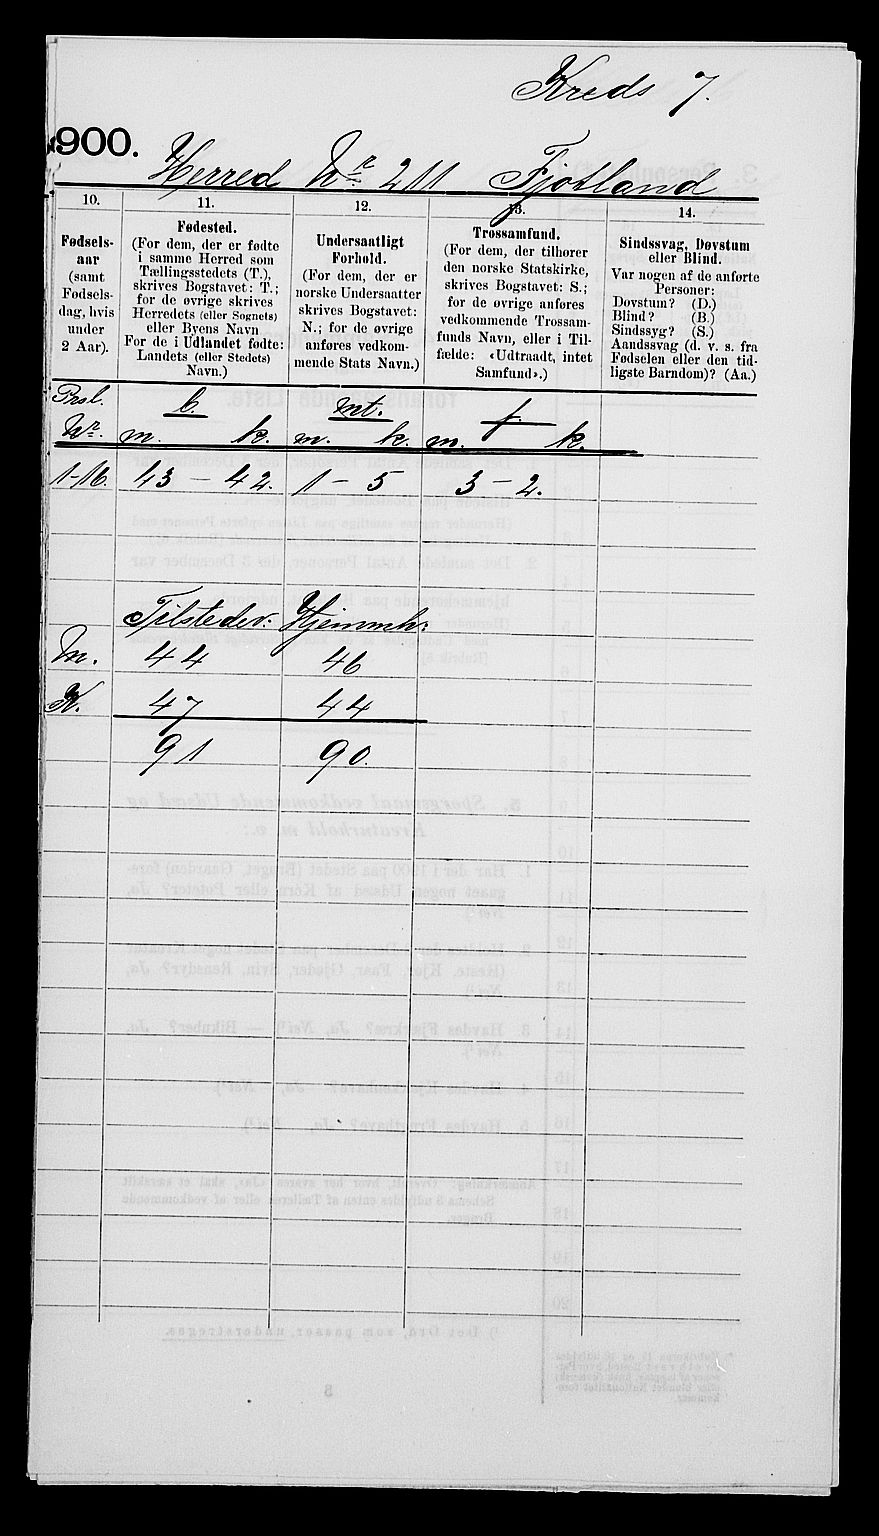 Kreds 7.
900.
Herred Nr. 211 Fjotland
10.
Fødsels-
aar
(samt
Fødsels-
dag, hvis
under
2 Aar).
11.
Fødested.
(For dem, der er fødte
i samme Herred som
Tællingsstedets (T.),
skrives Bogstavet: T.;
for de øvrige skrives
Herredets (eller Sognets)
eller Byens Navn
For de i Udlandet fødte:
Landets (eller Stedets)
Navn.)
12.
Undersaatligt
Forhold.
(For dem, der er
norske Undersaatter
skrives Bogstavet:
N.; for de øvrige
anføres vedkom-
mende Stats Navn.)
13.
Trossamfund.
(For dem, der tilhører
den norske Statskirke,
skrives Bogstavet: S.;
for de øvrige anføres
vedkommende Trossam-
funds Navn, eller i Til-
fælde: «Udtraadt, intet
Samfund».)
14.
Sindssvag, Døvstum
eller Blind.
Var nogen af de anførte
Personer:
Døvstum? (D.)
Blind? (B.)
Sindssyg? (S.)
Aandssvag (d. v. s. fra
Fødselen eller den tid-
ligste Barndom)? (Aa.)
Prsl. b. mt. f.
Nr. m. k. m. k. m. k.
1-16. 43 - 42. 1 - 5 3 - 2.
Tilstedev: Hjemmeh:
M. 44 46
K. 47 44
91 90.